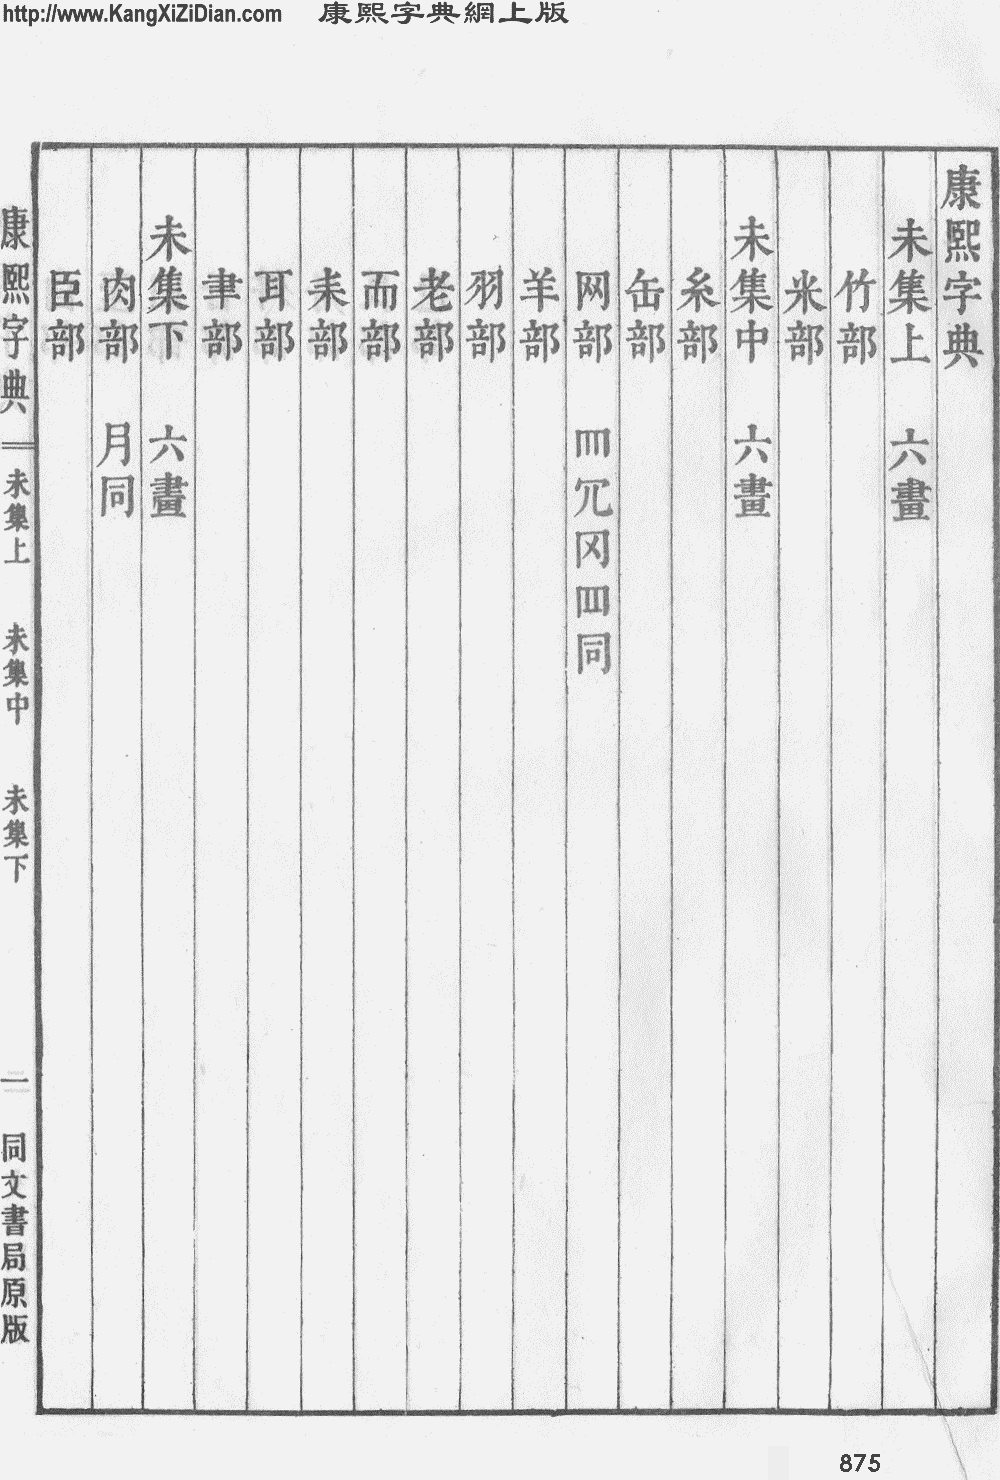 http://www.KangXiZiDian.com 康熙字典網上版
康熙字典
未集上 六畫
竹部
米部
未集中 六畫
糸部
缶部
网部 罒冗𦉰𦉫同
羊部
羽部
老部
而部
耒部
耳部
聿部
未集下 六畫
肉部 月同
臣部
康熙字典 未集上 未集中 未集下 一 同文書局原版
875